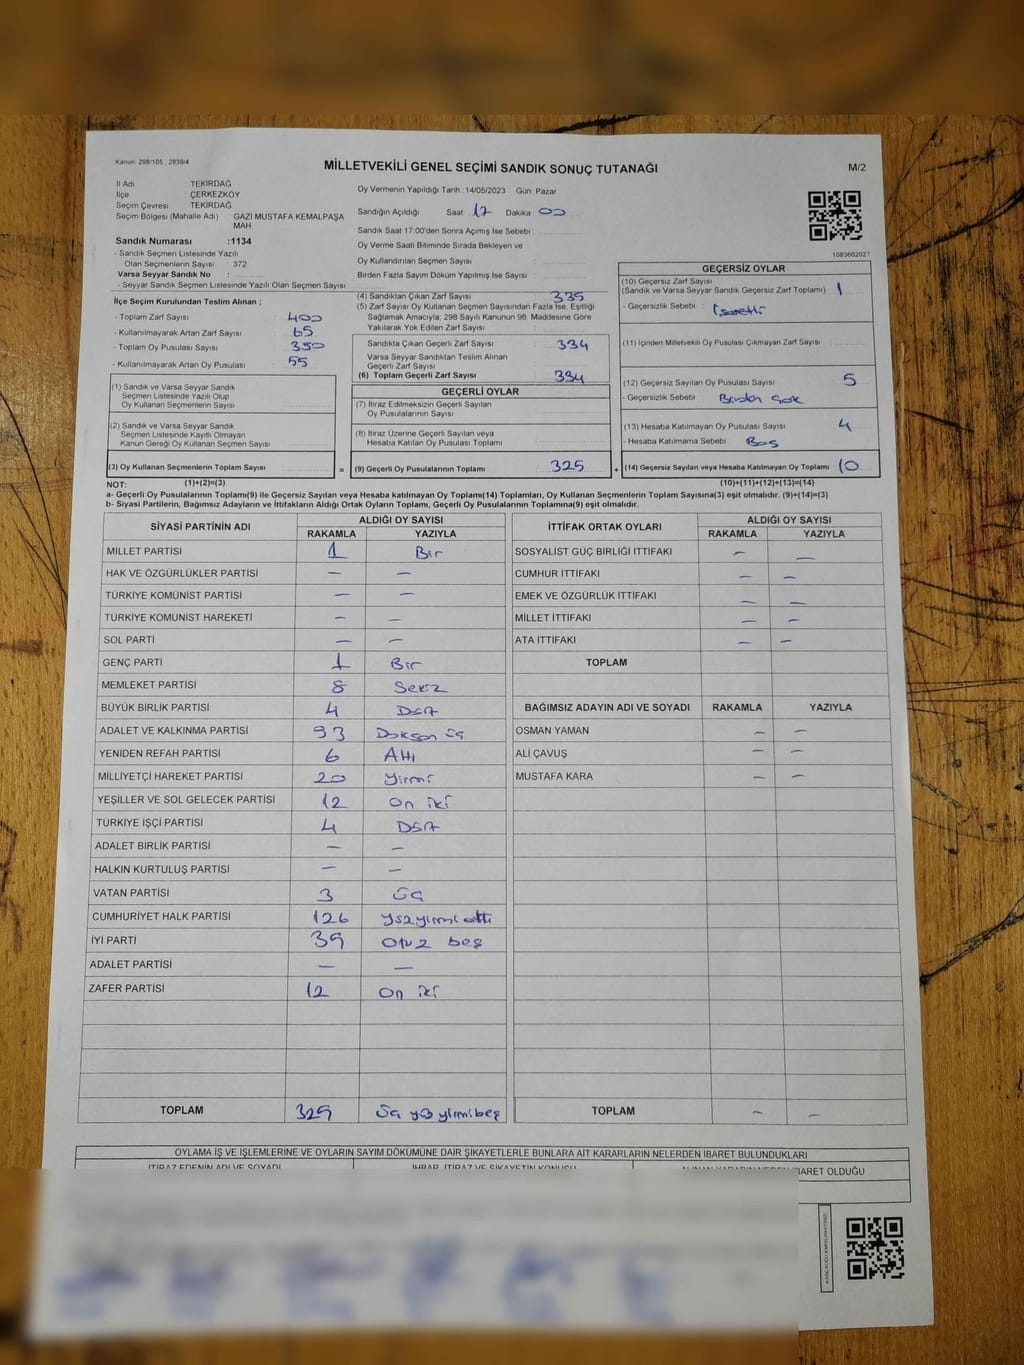 Kanun, 298/105 , 2839/4
MİLLETVEKİLİ GENEL SEÇİMİ SANDIK SONUÇ TUTANAĞI
M/2
İl Adı : TEKİRDAĞ
İlçe : ÇERKEZKÖY
Seçim Çevresi : TEKİRDAĞ
Seçim Bölgesi (Mahalle Adı) : GAZİ MUSTAFA KEMALPAŞA MAH
Sandık Numarası :1134
- Sandık Seçmen Listesinde Yazılı
Olan Seçmenlerin Sayısı : 372
Varsa Seyyar Sandık No :
- Seyyar Sandık Seçmen Listesinde Yazılı Olan Seçmen Sayısı:
Oy Vermenin Yapıldığı Tarih : 14/05/2023 Gün: Pazar
Sandığın Açıldığı Saat : 17 Dakika : 00
Sandık Saat 17.00'den Sonra Açımış İse Sebebi :
Oy Verme Saati Bitiminde Sırada Bekleyen ve
Oy Kullandırılan Seçmen Sayısı :
Birden Fazla Sayım Döküm Yapılmış İse Sayısı :
1083602027
İlçe Seçim Kurulundan Teslim Alınan ;
- Toplam Zarf Sayısı : 400
- Kullanılmayarak Artan Zarf Sayısı : 65
- Toplam Oy Pusulası Sayısı : 350
- Kullanılmayarak Artan Oy Pusulası : 55
(1) Sandık ve Varsa Seyyar Sandık
Seçmen Listesinde Yazılı Olup
Oy Kullanan Seçmenlerin Sayısı :
(2) Sandık ve Varsa Seyyar Sandık
Seçmen Listesinde Kayıtlı Olmayan
Kanun Gereği Oy Kullanan Seçmen Sayısı :
(3) Oy Kullanan Seçmenlerin Toplam Sayısı :
(4) Sandıktan Çıkan Zarf Sayısı : 335
(5) Zarf Sayısı Oy Kullanan Seçmen Sayısından Fazla İse, Eşitliği
Sağlamak Amacıyla, 298 Sayılı Kanunun 98. Maddesine Göre
Yakılarak Yok Edilen Zarf Sayısı :
Sandıkta Çıkan Geçerli Zarf Sayısı : 334
Varsa Seyyar Sandıktan Teslim Alınan
Geçerli Zarf Sayısı :
(6) Toplam Geçerli Zarf Sayısı : 334
GEÇERLİ OYLAR
(7) İtiraz Edilmeksizin Geçerli Sayılan
Oy Pusulalarının Sayısı :
(8) İtiraz Üzerine Geçerli Sayılan veya
Hesaba Katılan Oy Pusulası Toplamı :
= (9) Geçerli Oy Pusulalarının Toplamı : 325
GEÇERSİZ OYLAR
(10) Geçersiz Zarf Sayısı
(Sandık ve Varsa Seyyar Sandık Geçersiz Zarf Toplamı) : 1
- Geçersizlik Sebebi : İşaretli
(11) İçinden Milletvekili Oy Pusulası Çıkmayan Zarf Sayısı :
(12) Geçersiz Sayılan Oy Pusulası Sayısı : 5
- Geçersizlik Sebebi : Birden Çok
(13) Hesaba Katılmayan Oy Pusulası Sayısı : 4
- Hesaba Katılmama Sebebi : Boş
+ (14) Geçersiz Sayılan veya Hesaba Katılmayan Oy Toplamı : 10
NOT: (1)+(2)=(3)
(10)+(11)+(12)+(13)=(14)
a- Geçerli Oy Pusulalarının Toplamı(9) ile Geçersiz Sayılan veya Hesaba katılmayan Oy Toplamı(14) Toplamları, Oy Kullanan Seçmenlerin Toplam Sayısına(3) eşit olmalıdır. (9)+(14)=(3)
b- Siyasi Partilerin, Bağımsız Adayların ve İttifakların Aldığı Ortak Oyların Toplamı, Geçerli Oy Pusulalarının Toplamına(9) eşit olmalıdır.
SİYASİ PARTİNİN ADI
ALDIĞI OY SAYISI
RAKAMLA YAZIYLA
MİLLET PARTİSİ 1 Bir
HAK VE ÖZGÜRLÜKLER PARTİSİ — —
TÜRKİYE KOMÜNİST PARTİSİ — —
TÜRKİYE KOMÜNİST HAREKETİ — —
SOL PARTİ — —
GENÇ PARTİ 1 Bir
MEMLEKET PARTİSİ 8 Sekiz
BÜYÜK BİRLİK PARTİSİ 4 Dört
ADALET VE KALKINMA PARTİSİ 93 Doksan üç
YENİDEN REFAH PARTİSİ 6 Altı
MİLLİYETÇİ HAREKET PARTİSİ 20 Yirmi
YEŞİLLER VE SOL GELECEK PARTİSİ 12 On iki
TÜRKİYE İŞÇİ PARTİSİ 4 Dört
ADALET BİRLİK PARTİSİ — —
HALKIN KURTULUŞ PARTİSİ — —
VATAN PARTİSİ 3 Üç
CUMHURİYET HALK PARTİSİ 126 Yüzyirmi altı
İYİ PARTİ 35 Otuz beş
ADALET PARTİSİ — —
ZAFER PARTİSİ 12 On iki
TOPLAM 325 Üç yüz yirmibeş
İTTİFAK ORTAK OYLARI
ALDIĞI OY SAYISI
RAKAMLA YAZIYLA
SOSYALİST GÜÇ BİRLİĞİ İTTİFAKI — —
CUMHUR İTTİFAKI — —
EMEK VE ÖZGÜRLÜK İTTİFAKI — —
MİLLET İTTİFAKI — —
ATA İTTİFAKI — —
TOPLAM
BAĞIMSIZ ADAYIN ADI VE SOYADI RAKAMLA YAZIYLA
OSMAN YAMAN — —
ALİ ÇAVUŞ — —
MUSTAFA KARA — —
TOPLAM — —
OYLAMA İŞ VE İŞLEMLERİNE VE OYLARIN SAYIM DÖKÜMÜNE DAİR ŞİKAYETLERLE BUNLARA AİT KARARLARIN NELERDEN İBARET BULUNDUKLARI
İTİRAZ EDENİN ADI VE SOYADI İHBAR, İTİRAZ VE ŞİKAYETİN KONUSU ALINAN KARARIN NEDEN İBARET OLDUĞU